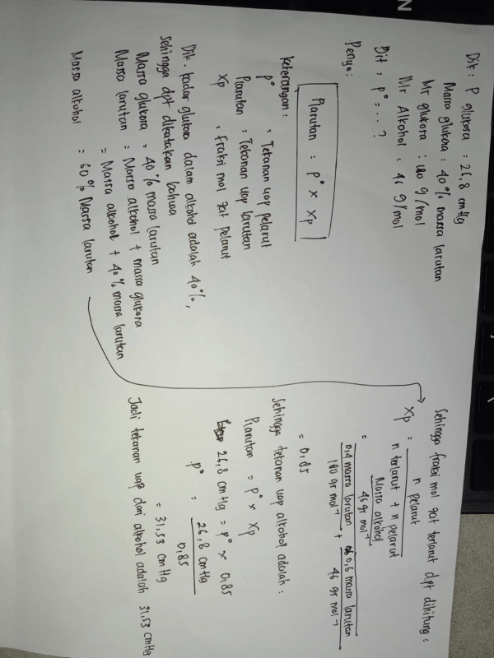 Dik : P glukosa : 26,8 cmHg
Massa glukosa : 40% massa larutan
Mr glukosa : 180 g/mol
Mr Alkohol : 46 g/mol
Dit : P° = ... ?
Penye :
Plarutan : P° × Xp
keterangan :
P° : Tekanan uap pelarut
Plarutan : Tekanan uap larutan
Xp : fraksi mol zat pelarut
Dik. kadar glukosa dalam alkohol adalah 40%,
sehingga dpt dikatakan bahwa
Massa glukosa = 40% massa larutan
Massa larutan = Massa alkohol + massa glukosa
= Massa alkohol + 40% massa larutan
Massa alkohol = 60% Massa larutan
Sehingga fraksi mol zat terlarut dpt dihitung :
Xp = n pelarut
n terlarut + n pelarut
= Massa alkohol
46 gr mol⁻¹
0,4 massa larutan + 0,6 massa larutan
180 gr mol⁻¹ 46 gr mol⁻¹
= 0,85
Sehingga tekanan uap alkohol adalah :
Plarutan = P° × Xp
26,8 cmHg = P° × 0,85
P° = 26,8 cmHg
0,85
= 31,53 cmHg
Jadi tekanan uap dari alkohol adalah 31,53 cmHg